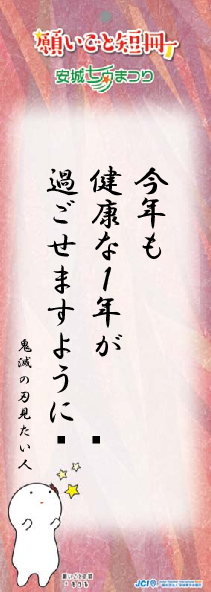 願いごと短冊
安城七夕まつり
今年も
健康な1年が
過ごせますように
鬼滅の刃見たい人
願いごと短冊
JCI